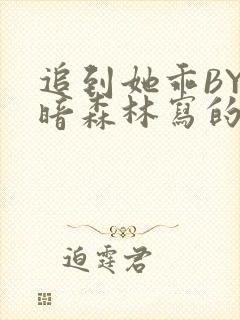 追到她乖BY
暗森林寫的
迫霆君